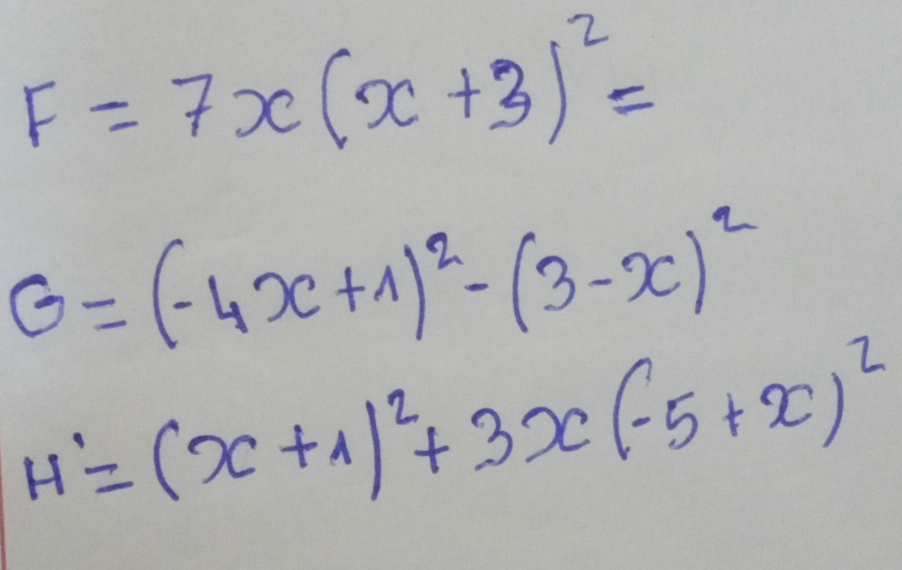 F = 7x(x+3)² =
G = (-4x+1)² - (3-x)²
H = (x+1)² + 3x(-5+x)²